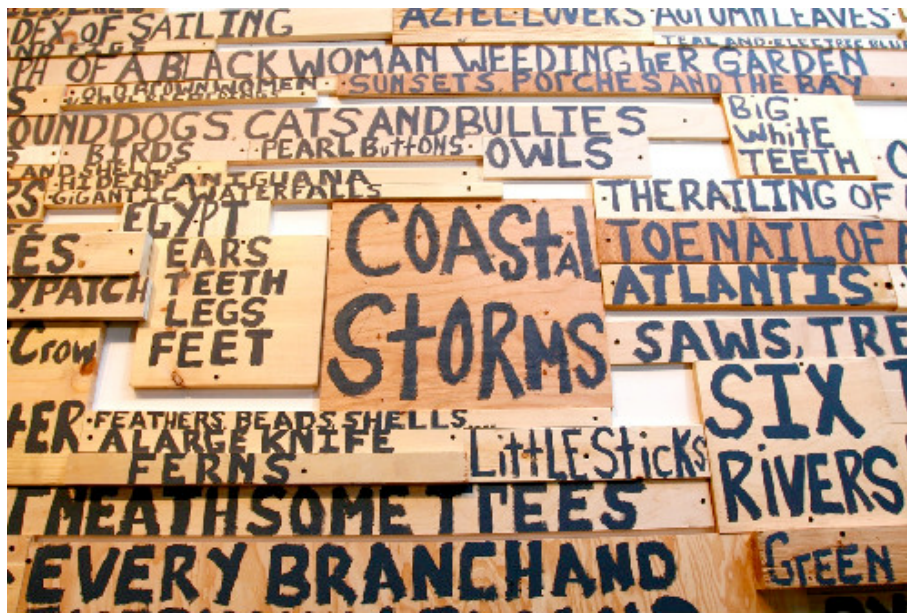 DEX OF SAILING
AZTEC LOVERS AUTUMN LEAVES
AND FIGS
TEAL AND ELECTRIC BLUE
PH OF A BLACK WOMAN WEEDING hER GARDEN
OLD BROWN WOMEN
SUNSETS, PORCHES AND THE BAY
OUND DOGS CATS AND BULLIES
BiG
WhitE
TEETH
BIRDS
PEARL BuTTONS
OWLS
AND SHELLS
HIDE OF AN IGUANA
GIGANTIC WATERFALLS
THE RAILING OF
EGYPT
COAStAL
StORMS
TOENAIL OF A
EARS
TEETH
LEGS
FEET
YPATCH
ATLANTIS
CRow
SAWS, TRE
SIX
RiVERS
FEATHERS BEADS, SHELLS....
A LARGE KNIFE
FERNS
LittLE SticKs
NEATH SOME TREES
EVERY BRANCH AND
GREEN